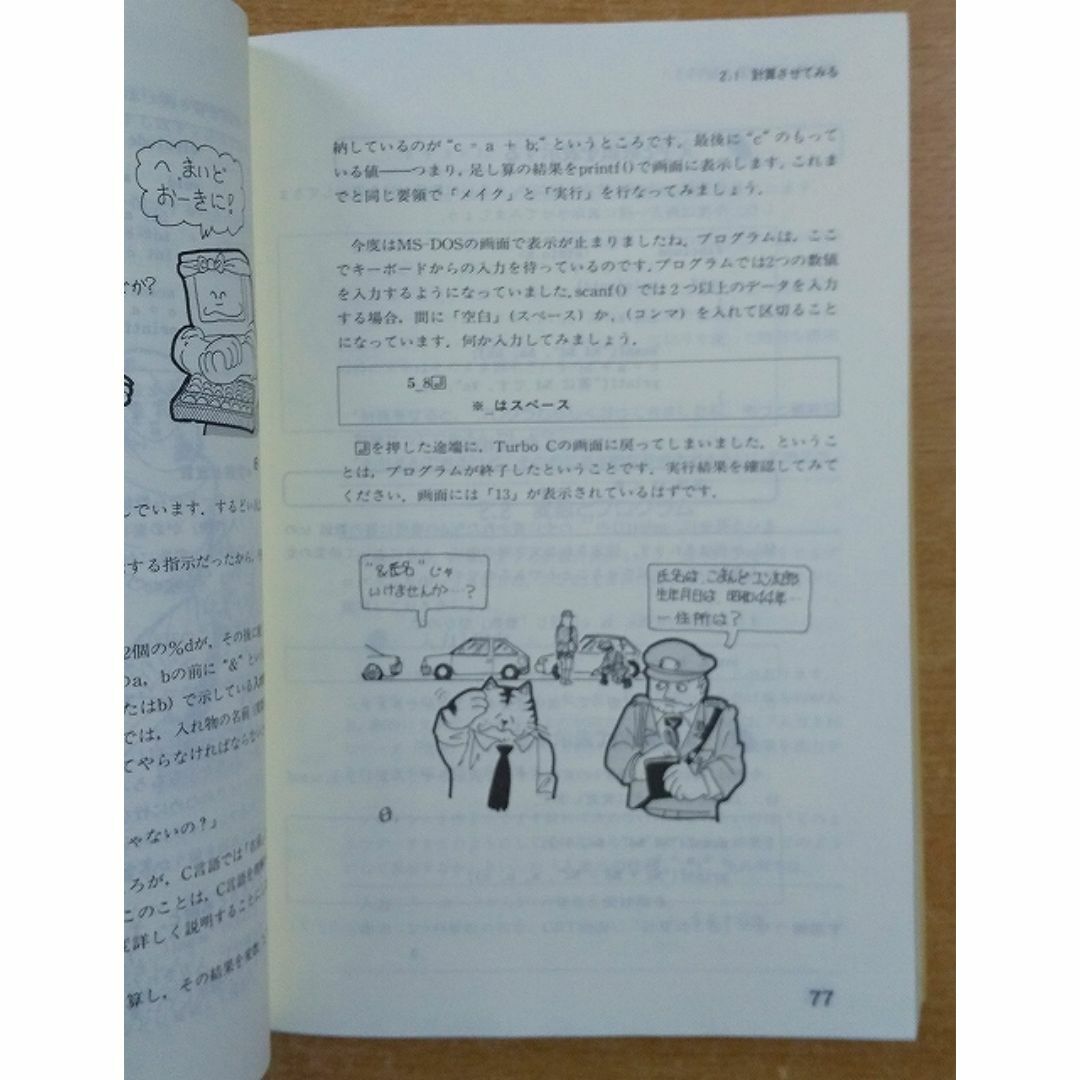 へ、まいど
おーきに!
か?
しています．するどい
する指示だったから，
2個の%dが，その後に
a，bの前に“&”とい
たはb）で示している入
では，入れ物の名前
てやらなければならない
ゃないの？」
ろが，C言語では「
このことは，C言語を
詳しく説明することに
算し，その結果を変数
2.1 計算させてみる
納しているのが“c = a + b;”というところです．最後に“c”のもって
いる値──つまり，足し算の結果をprintf()で画面に表示します．これま
でと同じ要領で「メイク」と「実行」を行なってみましょう．
今度はMS-DOSの画面で表示が止まりましたね．プログラムは，ここ
でキーボードからの入力を待っているのです．プログラムでは2つの数値
を入力するようになっていました．scanf() では２つ以上のデータを入力
する場合，間に「空白」(スペース) か，(コンマ) を入れて区切ること
になっています．何か入力してみましょう．
5_8⏎
※_はスペース
⏎を押した途端に，Turbo Cの画面に戻ってしまいました．というこ
とは，プログラムが終了したということです．実行結果を確認してみて
ください．画面には「13」が表示されているはずです．
“&氏名”じゃ
いけませんか…？
氏名は、こまんどコン太郎
生年月日は 昭和44年…
ー住所は？
77